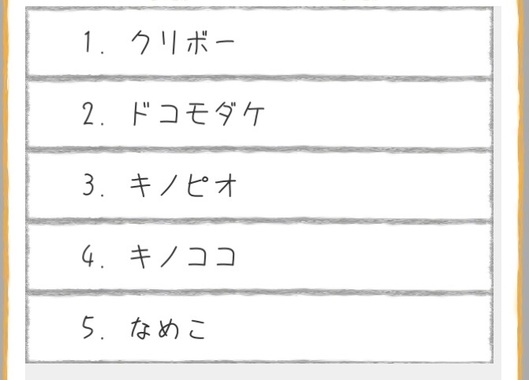 1. クリボー
2. ドコモダケ
3. キノピオ
4. キノココ
5. なめこ